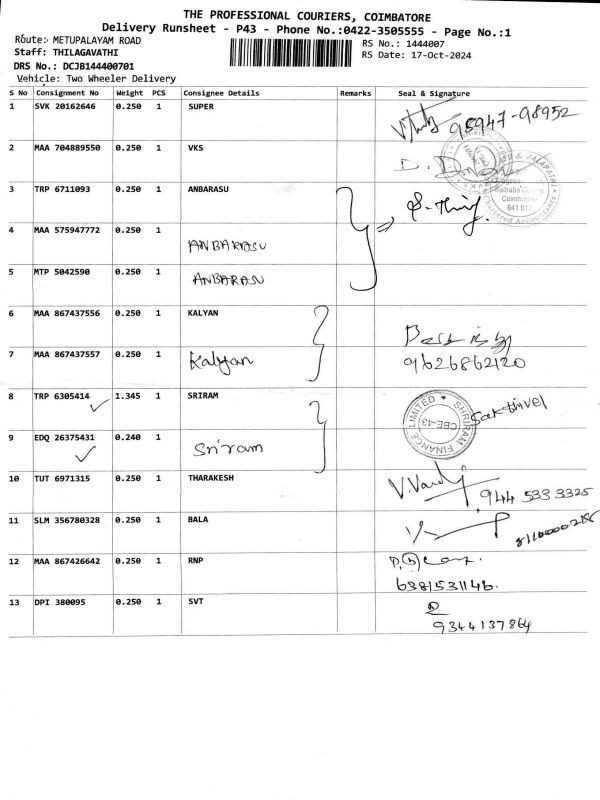 THE PROFESSIONAL COURIERS, COIMBATORE
Delivery Runsheet - P43 - Phone No.:0422-3505555 - Page No.:1
Route: METUPALAYAM ROAD
Staff: THILAGAVATHI
DRS No.: DCJB144400701
Vehicle: Two Wheeler Delivery
RS No.: 1444007
RS Date: 17-Oct-2024
S No Consignment No Weight PCS Consignee Details Remarks Seal & Signature
1 SVK 20162646 0.250 1 SUPER
95947-98952
2 MAA 704889550 0.250 1 VKS
3 TRP 6711093 0.250 1 ANBARASU
Coimbatore
641 012
Chartered Accountants
4 MAA 575947772 0.250 1 ANBARASU
5 MTP 5042590 0.250 1 ANBARASU
6 MAA 867437556 0.250 1 KALYAN
7 MAA 867437557 0.250 1 Kalyan 9626862120
8 TRP 6305414 1.345 1 SRIRAM
SHRIRAM FINANCE LIMITED
CBE-43
Sakthivel
9 EDQ 26375431 0.240 1 Sriram
10 TUT 6971315 0.250 1 THARAKESH
944 533 3325
11 SLM 356780328 0.250 1 BALA
12 MAA 867426642 0.250 1 RNP
6381531146.
13 DPI 380095 0.250 1 SVT
9344137864